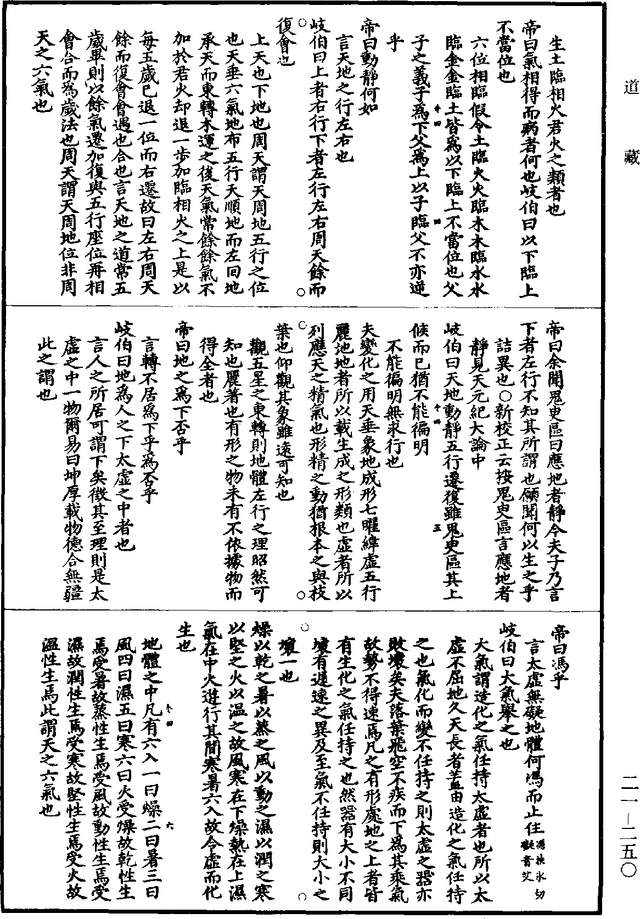 道藏
生土臨相火君火之類者也
帝曰氣相得而病者何也岐伯曰以下臨上
不當位也
六位相臨假令土臨火火臨木木臨水水
臨金金臨土皆爲以下臨上不當位也父
子之義子爲下父爲上以子臨父不亦逆
乎
帝曰動靜何如
言天地之行左右也
岐伯曰上者右行下者左行左右周天餘而
復會也
上天也下地也周天謂天周地五行之位
也天垂六氣地布五行天順地而左回地
承天而東轉木運之後天氣常餘餘氣不
加於君火却退一步加臨相火之上是以
每五歲已退一位而右遷故曰左右周天
餘而復會會遇也合也言天地之道常五
歲畢則以餘氣遷加復與五行座位再相
會合而爲歲法也周天謂天周地位非周
天之六氣也
帝曰余聞鬼臾區曰應地者靜今夫子乃言
下者左行不知其所謂也願聞何以生之乎
詰異也○新校正云按鬼臾區言應地者
靜見天元紀大論中
岐伯曰天地動靜五行遷復雖鬼臾區其上
候而已猶不能徧明
不能徧明無求行也
夫變化之用天垂象地成形七曜緯虛五行
麗地地者所以載生成之形類也虛者所以
列應天之精氣也形精之動猶根本之與枝
葉也仰觀其象雖遠可知也
觀五星之東轉則地體左行之理昭然可
知也麗著也有形之物未有不依據物而
得全者也
帝曰地之爲下否乎
言轉不居爲下乎爲否乎
岐伯曰地爲人之下太虛之中者也
言人之所居可謂下矣徵其至理則是太
虛之中一物爾易曰坤厚載物德合無疆
此之謂也
帝曰馮乎
言太虛無礙地體何馮而止住
岐伯曰大氣舉之也
大氣謂造化之氣任持太虛者也所以太
虛不屈地久天長者蓋由造化之氣任持
之也氣化而變不任持之則太虛之器亦
敗壞矣夫落葉飛空不疾而下爲其乘氣
故勢不得速焉凡之有形處地之上者皆
有生化之氣任持之也然器有大小不同
壞有遲速之異及至氣不任持則大小之
壞一也
燥以乾之暑以蒸之風以動之濕以潤之寒
以堅之火以溫之故風寒在下燥熱在上濕
氣在中火遊行其間寒暑六入故令虛而化
生也
地體之中凡有六入一曰燥二曰暑三曰
風四曰濕五曰寒六曰火受燥故乾性生
焉受暑故蒸性生焉受風故動性生焉受
濕故潤性生焉受寒故堅性生焉受火故
溫性生焉此謂天之六氣也
二一－二五〇